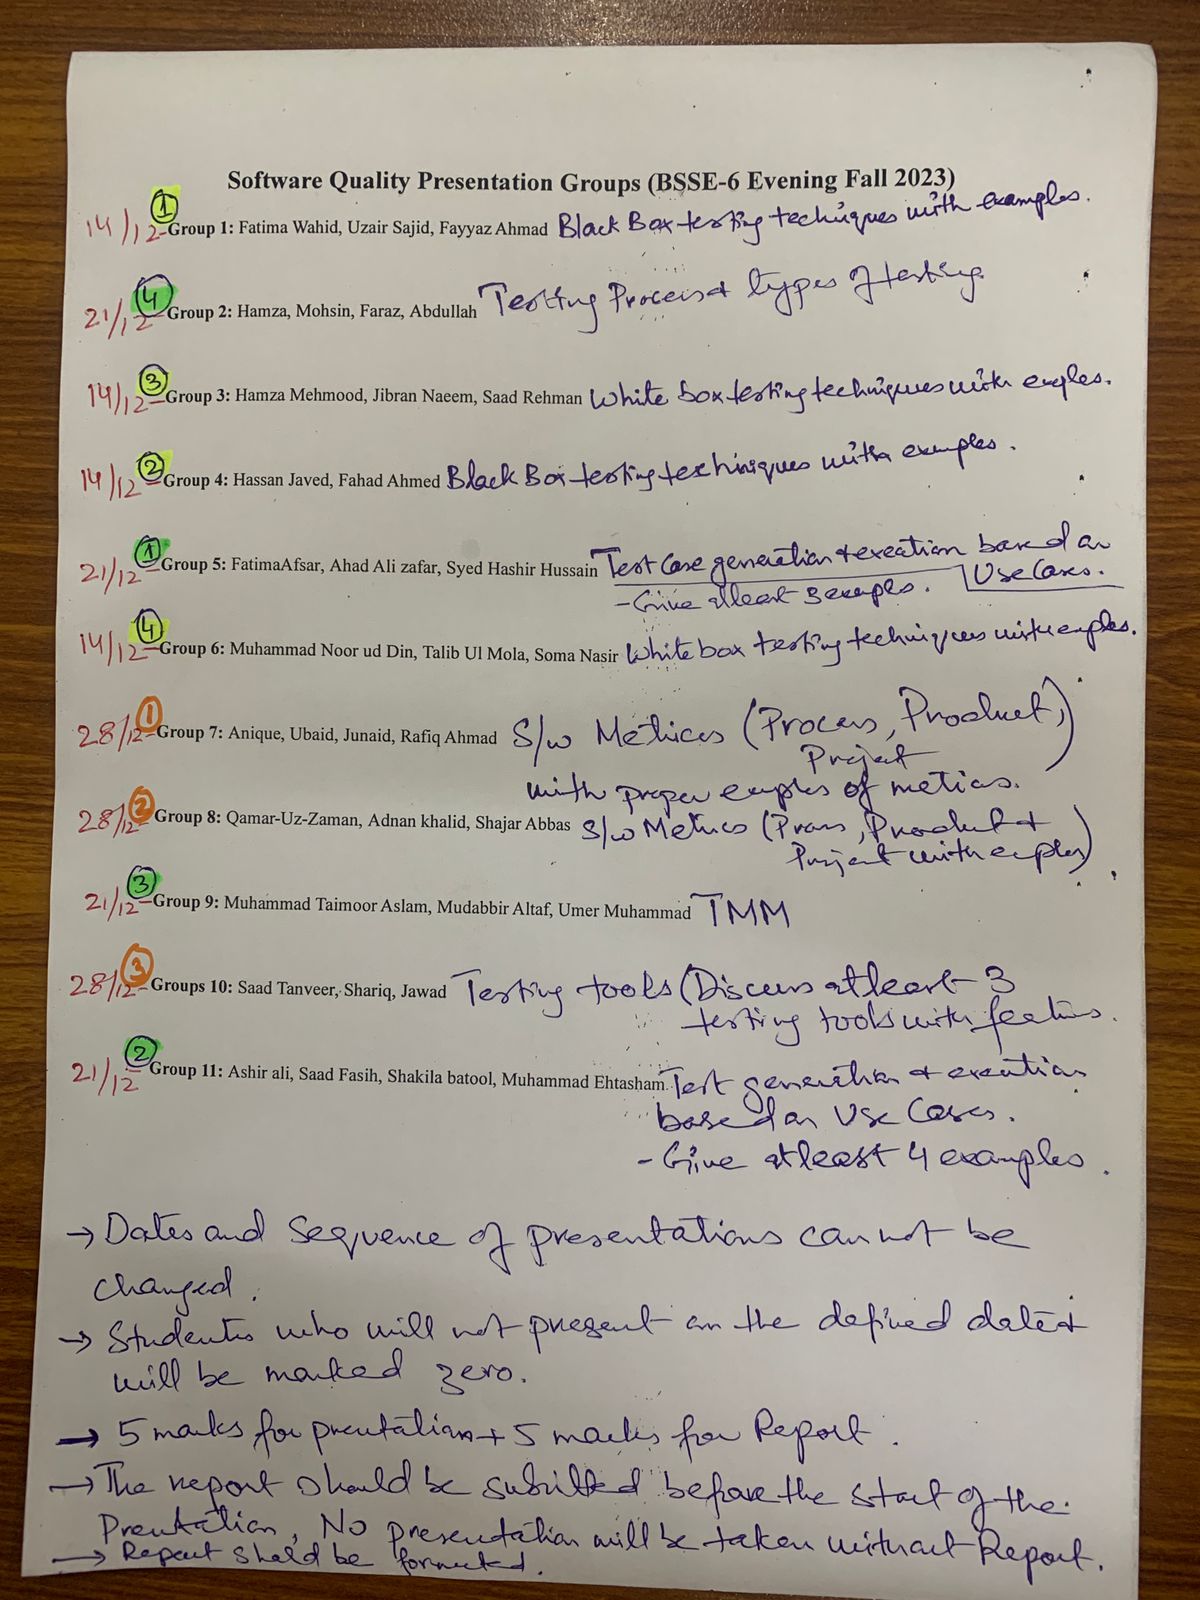 Software Quality Presentation Groups (BSSE-6 Evening Fall 2023)
14/12 1 Group 1: Fatima Wahid, Uzair Sajid, Fayyaz Ahmad Black Box testing techniques with examples.
21/12 4 Group 2: Hamza, Mohsin, Faraz, Abdullah Testing Process & types of testing
14/12 3 Group 3: Hamza Mehmood, Jibran Naeem, Saad Rehman White box testing techniques with
14/12 2 Group 4: Hassan Javed, Fahad Ahmed Black Box testing techniques with examples.
21/12 1 Group 5: FatimaAfsar, Ahad Ali zafar, Syed Hashir Hussain Test Case generation & based on
- Give atleast 3 Use Cases.
14/12 4 Group 6: Muhammad Noor ud Din, Talib Ul Mola, Soma Nasir White box testing techniques with
28/12 1 Group 7: Anique, Ubaid, Junaid, Rafiq Ahmad S/w Metrices (Process, Product,
Project)
with proper of
28/12 2 Group 8: Qamar-Uz-Zaman, Adnan khalid, Shajar Abbas S/w Metrics ( , Product &
Project with )
21/12 3 Group 9: Muhammad Taimoor Aslam, Mudabbir Altaf, Umer Muhammad TMM
28/12 3 Groups 10: Saad Tanveer, Shariq, Jawad Testing tools (Discuss atleast 3
testing tools with
21/12 2 Group 11: Ashir ali, Saad Fasih, Shakila batool, Muhammad Ehtasham. Test generation & execution
based on Use Cases.
- Give atleast 4 examples.
→ Dates and Sequence of presentations can not be
changed.
→ Students who will not present on the defined dates
will be marked zero.
→ 5 marks for + 5 marks for Report.
→ The report should be before the start of the
No presentation will be taken without Report.
→ Report should be